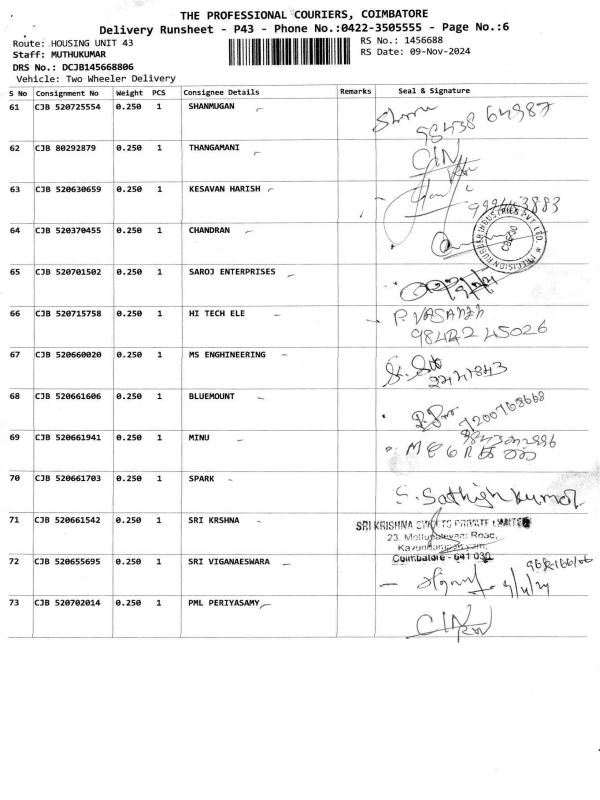 THE PROFESSIONAL COURIERS, COIMBATORE
Delivery Runsheet - P43 - Phone No.:0422-3505555 - Page No.:6
Route: HOUSING UNIT 43 RS No.: 1456688
Staff: MUTHUKUMAR RS Date: 09-Nov-2024
DRS No.: DCJB145668806
Vehicle: Two Wheeler Delivery
S No Consignment No Weight PCS Consignee Details Remarks Seal & Signature
61 CJB 520725554 0.250 1 SHANMUGAN 98438 64987
62 CJB 80292879 0.250 1 THANGAMANI
63 CJB 520630659 0.250 1 KESAVAN HARISH
64 CJB 520370455 0.250 1 CHANDRAN PRECISION RUBBER INDUSTRIES PVT. LTD.
65 CJB 520701502 0.250 1 SAROJ ENTERPRISES
66 CJB 520715758 0.250 1 HI TECH ELE P. VASANTH
98422 45026
67 CJB 520660020 0.250 1 MS ENGHINEERING
68 CJB 520661606 0.250 1 BLUEMOUNT 7200768668
69 CJB 520661941 0.250 1 MINU
70 CJB 520661703 0.250 1 SPARK S. Sathishkumar
71 CJB 520661542 0.250 1 SRI KRSHNA SRI KRISHNA SWEETS PRIVATE LIMITED
23, Mettupalayam Road,
Kavundampalayam,
Coimbatore - 641 030
72 CJB 520655695 0.250 1 SRI VIGANAESWARA
73 CJB 520702014 0.250 1 PML PERIYASAMY